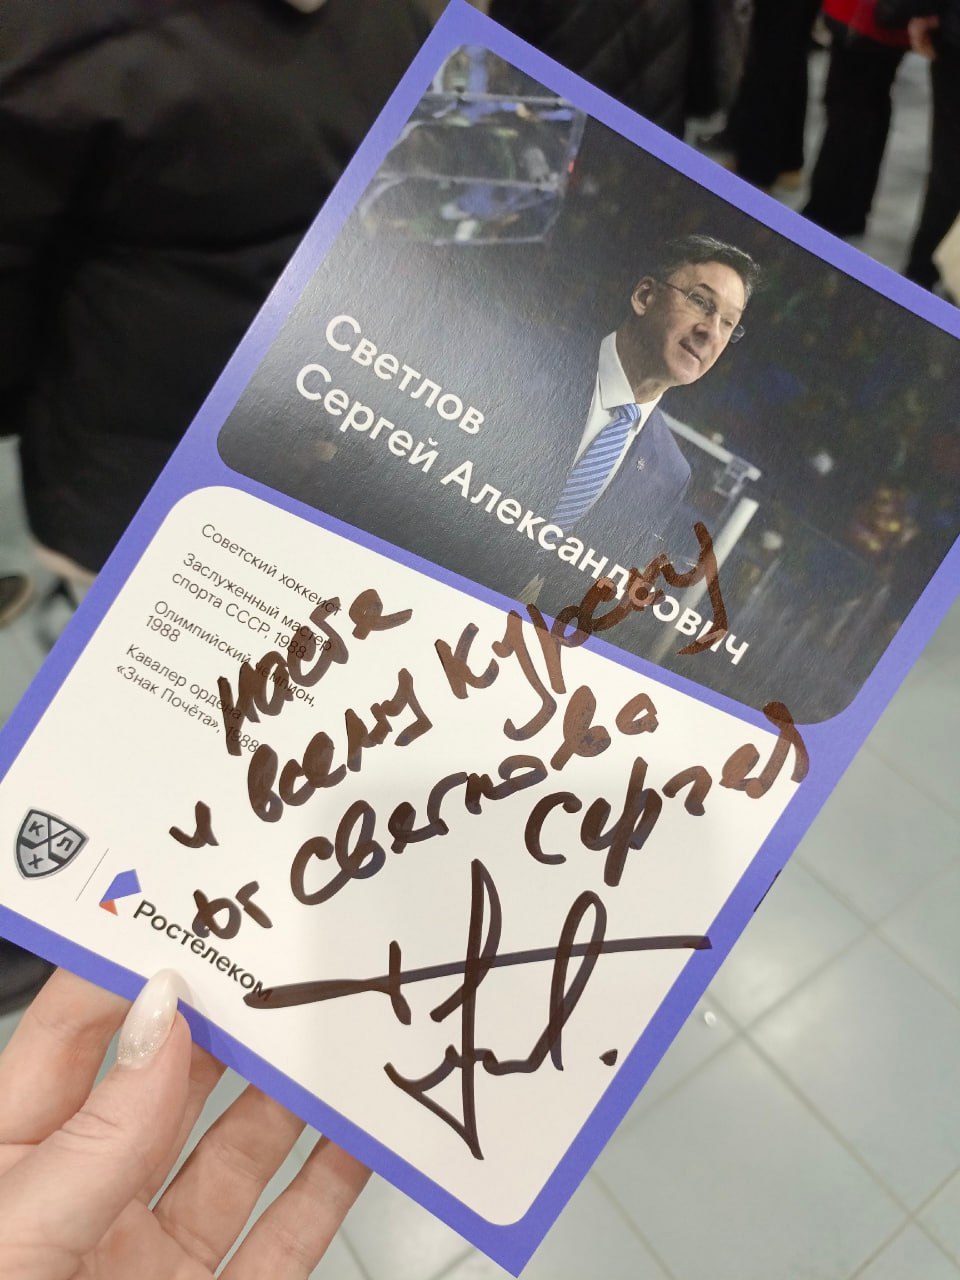 Светлов
Сергей Александрович
Советский хоккеист
Заслуженный мастер
спорта СССР, 1988
Олимпийский чемпион,
1988
Кавалер ордена
«Знак Почёта», 1988
Насте
и всему курсу
от Светлова
Сергея
КХЛ
Ростелеком